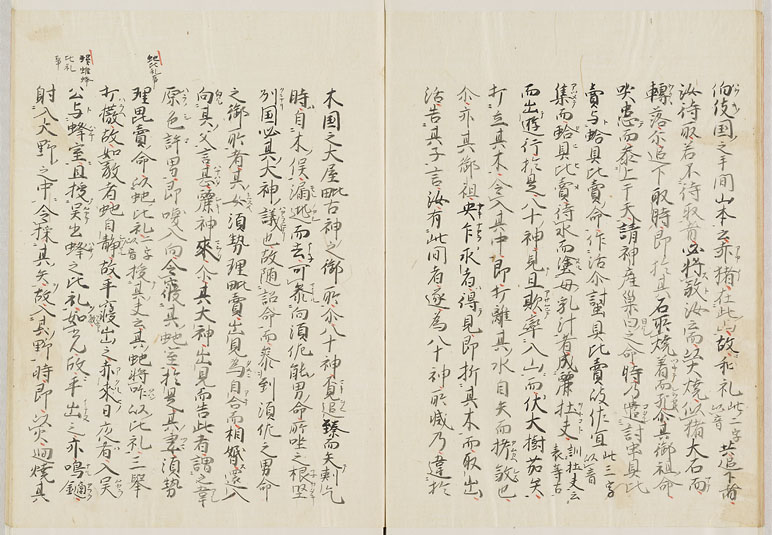 伯伎国之手間山本云赤猪在此山故和礼此二字以音共追下者
汝待取若不待取者必将殺汝云而以火焼似猪大石而
轉落尓追下取時即於其石所焼著而死尓其御祖命
哭患而参上于天請神産巣日之命時乃遣討貝比
賣与蛤貝比賣命作活尓蟄貝比賣岐佐宜此三字以音
集而蛤貝比賣待水而塗母乳汁者成麗壮夫訓壮夫云袁等古
而出遊行於是八十神見且欺率入山而伏大樹茹矢
打立其木令入其中即打離其氷目矢而拷殺也
尓亦其御祖央乍求者得見即折其木而取出
活告其子言汝有此間者遂為八十神所滅乃違於
木国之大屋毗古神之御所尓八十神覓追臻而矢刺乞
時自木俣漏逃而去可参向須佐能男命所坐之根堅
列国必其大神議也故随詔命而参到須佐之男命
之御所者其女須勢理毗賣出見為目合而相婚還入
向其父言甚麗神来尓其大神出見而告此者謂之葦
原色許男即喚入而令寝其蛇室於是其妻須勢
蛇比礼
理毘賣命以蛇比礼二字以音授其夫云其蛇将咋以此礼三挙
打撥故如教者蛇自静故平寝出之亦来日夜者入呉
比礼
公与蜂室且授呉公蜂之比礼如先故平出之亦鳴鏑
射入大野之中令採其矢故入其野時即以火廻焼其